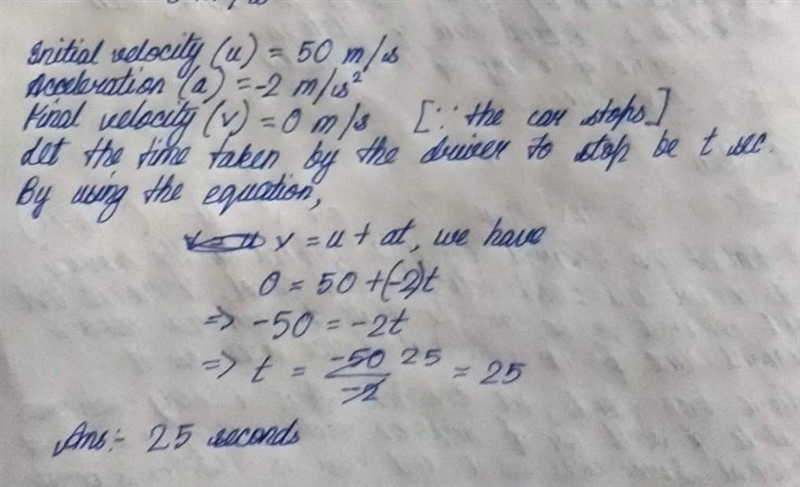 Initial velocity (u) = 50 m/s
Acceleration (a) = -2 m/s²
Final velocity (v) = 0 m/s [∵ the car stops]
Let the time taken by the driver to stop be t sec.
By using the equation,
v = u + at, we have
0 = 50 + (-2)t
=> -50 = -2t
=> t = -50/-2 25 = 25
Ans:- 25 seconds